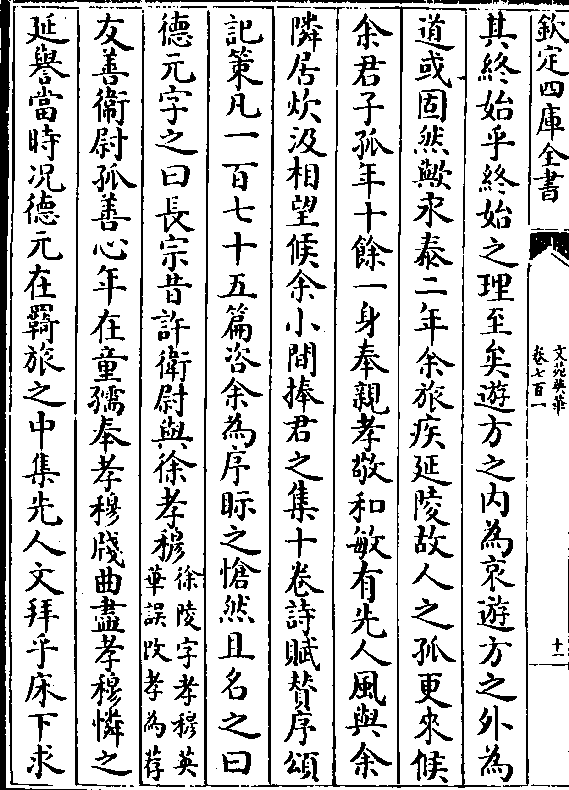 欽定四庫全書
文苑英華
卷七百一
十一
其終始乎終始之理至矣遊方之内為哀遊方之外為
道或固然歟永泰二年余旅疾延陵故人之孤更來候
余君子孤年十餘一身奉親孝敬和敏有先人風與余
隣居炊汲相望候余小間捧君之集十卷詩賦賛序頌
記策凡一百七十五篇咨余為序眎之愴然且名之曰
德元字之曰長宗昔許衛尉與徐孝穆徐陵字孝穆英華誤改孝為荐
友善衞尉孤善心年在童孺奉孝穆牋曲盡孝穆憐之
延譽當時况德元在羇旅之中集先人文拜乎床下求